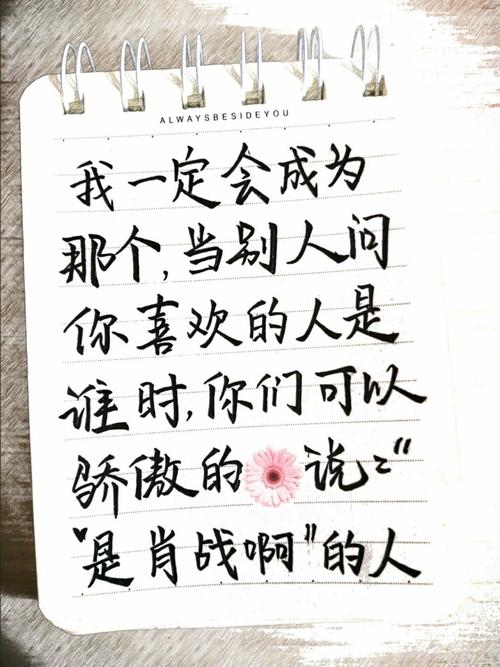 ALWAYSBESIDEYOU
我一定会成为
那个,当别人问
你喜欢的人是
谁时,你们可以
骄傲的说:“
“是肖战啊”的人